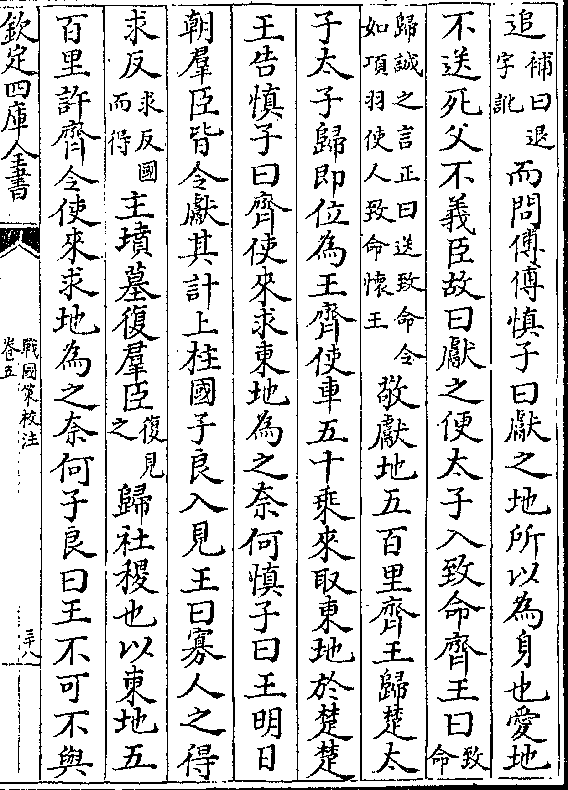 追補曰退字訛而問傅傅慎子曰獻之地所以為身也愛地
不送死父不義臣故曰獻之便太子入致命齊王曰致命
歸誠之言正曰送致命令如項羽使人致命懷王敬獻地五百里齊王歸楚太
子太子歸即位為王齊使車五十乗來取東地於楚楚
王告慎子曰齊使來求東地為之奈何慎子曰王明日
朝羣臣皆令獻其計上柱國子良入見王曰寡人之得
求反求反國而得主墳墓復羣臣復見之歸社稷也以東地五
百里許齊令使來求地為之奈何子良曰王不可不與
欽定四庫全書
戰國策校注
卷五
三十八